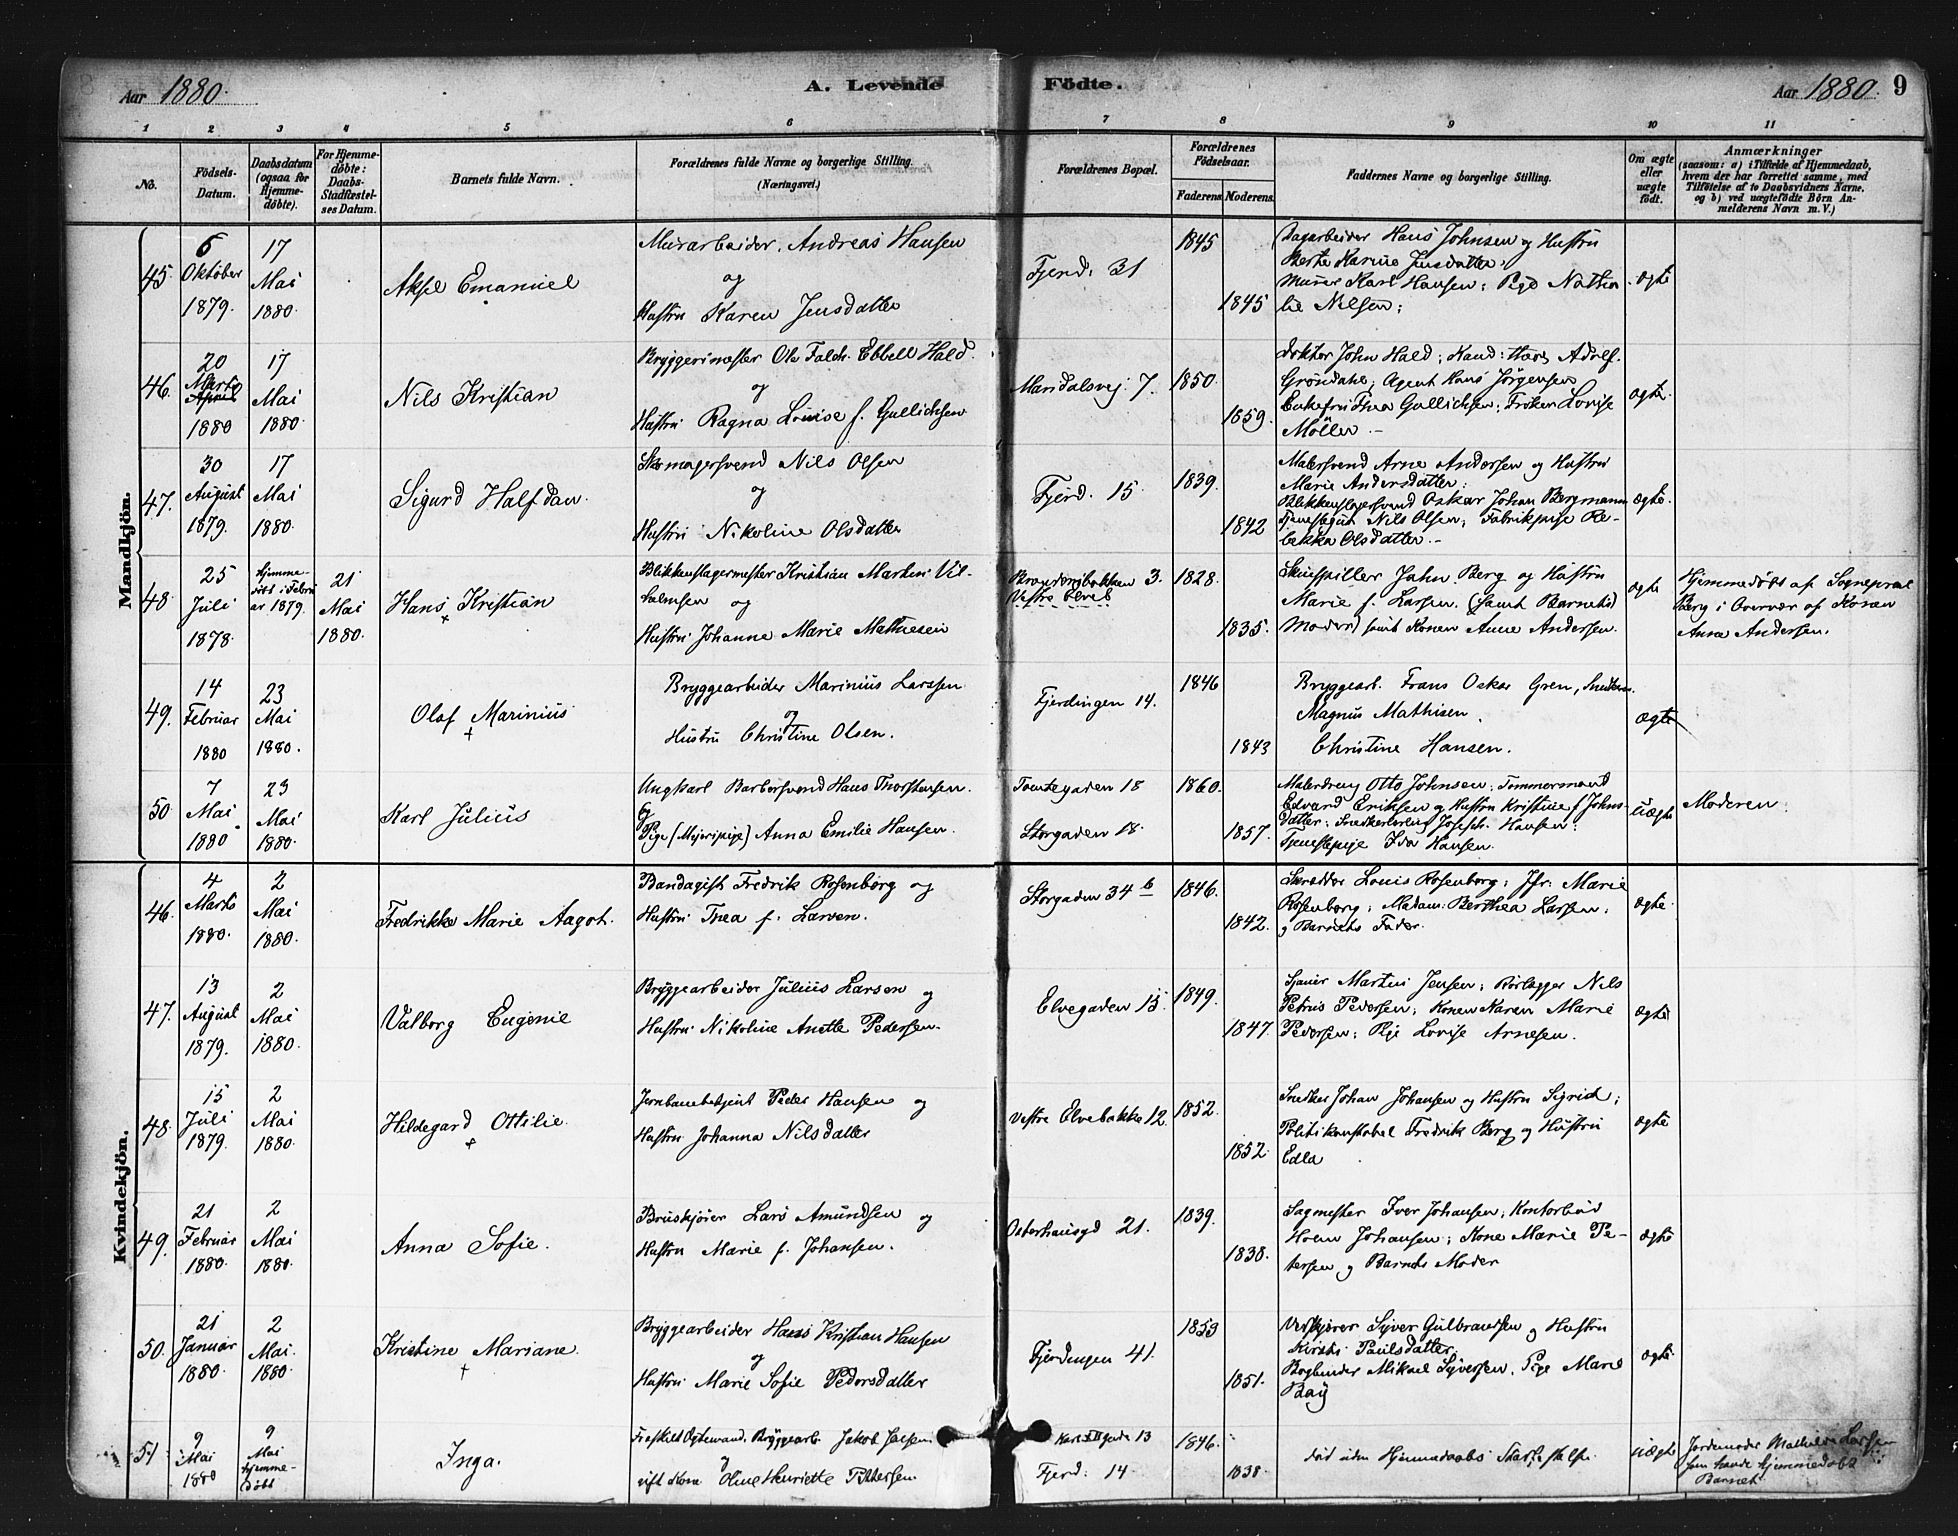 Aar 1880. A. Levende Födte. Aar 1880. 9
1 2 3 4 5 6 7 8 9 10 11
No. Födsels-Datum. Daabsdatum (ogsaa for Hjemme-döbte). For Hjemme-döbte: Daabs-Stadfæstel-ses Datum. Barnets fulde Navn. Forældrenes fulde Navne og borgerlige Stilling. (Næringsvei.) Forældrenes Bopæl. Forældrenes Födselsaar. Faderens Moderens. Faddernes Navne og borgerlige Stilling. Om ægte eller uægte födt. Anmærkninger (saasom: a) i Tilfælde af Hjemmedaab, hvem der har forrettet samme, med Tilföielse af to Daabsvidners Navne, og b) ved uægtefödte Börn Anmelderens Navn m. V.)
Mandkjön.
45. 6 Oktober 1879. 17 Mai 1880. Aksel Emanuel
Murarbeider. Andreas Hansen
og
Hustru Karen Jensdatter
Fjerd: 31 1845 1845
Dagarbeider Hans Johnsen og Hustru
Berte Karine Jensdatter;
Murer Karl Hansen; Pige Natha
lie Nilsen;
ægte
46. 20 Marts April 1880 17 Mai 1880. Nils Kristian
Bryggerimester Ole Falch Ebbell Hald.
og
Hustru Ragna Louise f. Gullichsen
Mandalsvej 7. 1850. 1859.
Doktor John Hald; Kand: Adolf
Gröndahl; Agent Hans Jörgensen
Enkefru Thea Gullichsen; Fröken Lovise
Möller.-
ægte.
47. 30 August 1879. 17 Mai 1880. Sigurd Halfdan.
Skomagersvend Nils Olsen
og
Hustru Nikoline Olsdatter
Fjerd. 15. 1839. 1842
Malersvend Arne Andersen og Hustru
Marie Andersdatter;
Blikkenslagersvend Oskar Johan Bergmann
Nils Olsen; Fabrikpige Re-
bekka Olsdatter.-
ægte.
48. 25 Juli 1878. Hjemme-döbt i Febru ar 1879. 21 Mai 1880. Hans Kristian
Blikkenslagermester Kristian Martin Vil-
helmsen og
Hustru Johanne Marie Mathiesen
3. Vestre Elveb 1828. 1835.
Skuespiller John Berg og Hustru
Marie f. Larsen (samt Barnets
Moder) samt Konen Anne Andersen.
ægte
Hjemmedöbt af Sogneprest
Berg i Overvær af Konen
Anna Andersen.
49. 14 Februar 1880 23 Mai 1880. Olaf Marinius
Bryggearbeider Marinius Larssen
og
Hustru Christine Olsen.
Fjerdingen 14. 1846 1843
Bryggearb. Frans Oskar Gren, Snedker
Magnus Mathisen,
Christine Hansen.
ægte
50 7 Mai 1880 23 Mai 1880. Karl Julius
Ungkarl Barbersvend Hans Thorstensen.
Og
Pige (Mejeripige) Anna Emilie Hansen.
Tomtegaden 18
Storgaden 18. 1860. 1857.
Malerdreng Otto Johnsen; Tømmermand
Edvard Eriksen og Hustru Kristine f Johns-
datter; Snedkerlærling Joseph Hansen;
Tjenestepige Ida Hansen.
uægte Moderen.
Kvindekjön.
46. 4 Marts 1880. 2 Mai 1880. Fredrikke Marie Aagot.
Bandagist Fredrik Rosenborg og
Hustru Thea f. Larsen.
Storgaden 34 b 1846. 1842.
Skrædder Louis Rosenborg; Jfr. Marie
Rosenborg; Madam: Berthea Larsen;
og Barnets Fader.
ægte.
47. 13 August 1879. 2 Mai 1880. Valborg Eugenie
Bryggearbeider Julius Larsen og
Hustru Nikoline Anette Pedersen.
Elvegaden 15. 1849. 1847.
Sjauer Martin Jensen; Rörlægger Nils
Petrus Pedersen; Konen Karen Marie
Pedersen; Pige Lovise Arnesen.
ægte
48. 15 Juli 1879. 2 Mai 1880. Hildegard Ottilie.
Jernbanebetjent Peder Hansen og
Hustru Johanna Nilsdatter
Vestre Elvebakke 12. 1852. 1852.
Snedker Johan Johansen og Hustru Sigrid;
Politikonstabel Fredrik Berg og Hustru
Edla
ægte
49. 21 Februar 1880. 2 Mai 1880. Anna Sofie.
Bruskjörer Lars Amundsen og
Hustru Marie f. Johansen.
Osterhausgd 21. 1839. 1838.
Sagmester Iver Johansen; Kontorbud
Johansen; Kone Marie Pe-
tersen og Barnets Moder
ægte
50. 21 Januar 1880. 2 Mai. 1880. Kristine Mariane.
Bryggearbeider Hans Kristian Hansen
og
Hustru Marie Sofie Pedersdatter
Fjerdingen 41. 1853 1851.
Vedkjører Syver Gulbrandsen og Hustru
Kirsti Paulsdatter;
Bogbinder Mikael Syversen. Pige Marie
Bay
ægte
51 9 Mai 1880 9 Mai Hjemme-döbt Inga.
Fraskilt Ægtemand Bryggearb. Jakob
og
Oline Henriette Pettersen.
Karl XII gade 13
Fjerd: 14 1846. 1838.
död uden Hjemmedaabs
uægte
Jordemoder Mathilde Larsen
som havde hjemmedöbt
Barnet